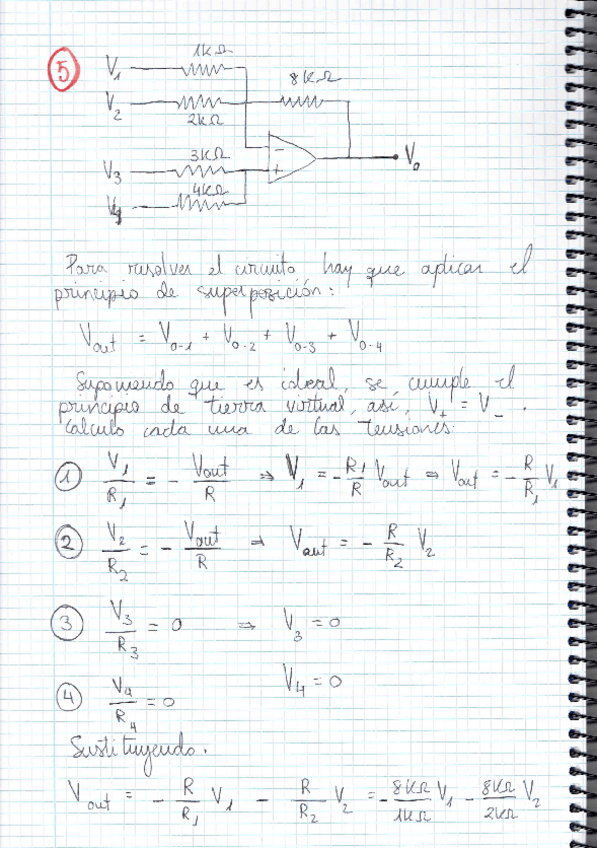 5
1KΩ
V₁
8KΩ
V₂
2KΩ
3KΩ
V₃
4KΩ
V₄
-
+
V₀
Para resolver el circuito hay que aplicar el
principio de superposición:
V_out = V₀₋₁ + V₀₋₂ + V₀₋₃ + V₀₋₄
Suponiendo que es ideal, se cumple el
principio de tierra virtual, así, V₊ = V₋ .
Calculo cada una de las tensiones:
① V₁/R₁ = - Vout/R ⇒ V₁ = - R₁/R Vout ⇒ Vout = - R/R₁ V₁
② V₂/R₂ = - Vout/R ⇒ Vout = - R/R₂ V₂
③ V₃/R₃ = 0 ⇒ V₃ = 0
④ V₄/R₄ = 0 V₄ = 0
Sustituyendo.
V out = - R/R₁ V₁ - R/R₂ V₂ = - 8KΩ/1KΩ V₁ - 8KΩ/2KΩ V₂